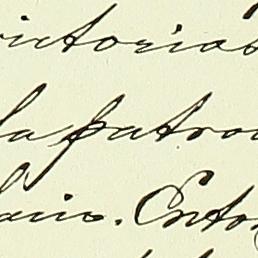 victorias
la patro
lain. Ento